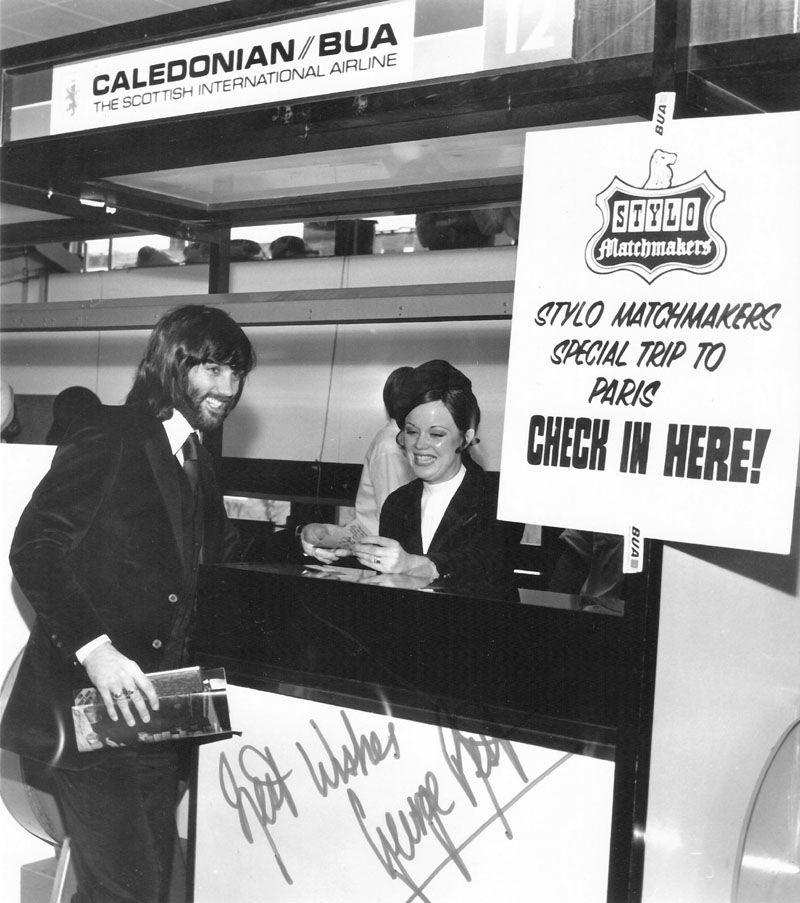 CALEDONIAN//BUA
THE SCOTTISH INTERNATIONAL AIRLINE
12
BUA
STYLO
Matchmakers
STYLO MATCHMAKERS
SPECIAL TRIP TO
PARIS
CHECK IN HERE!
BUA
Best Wishes
George Best